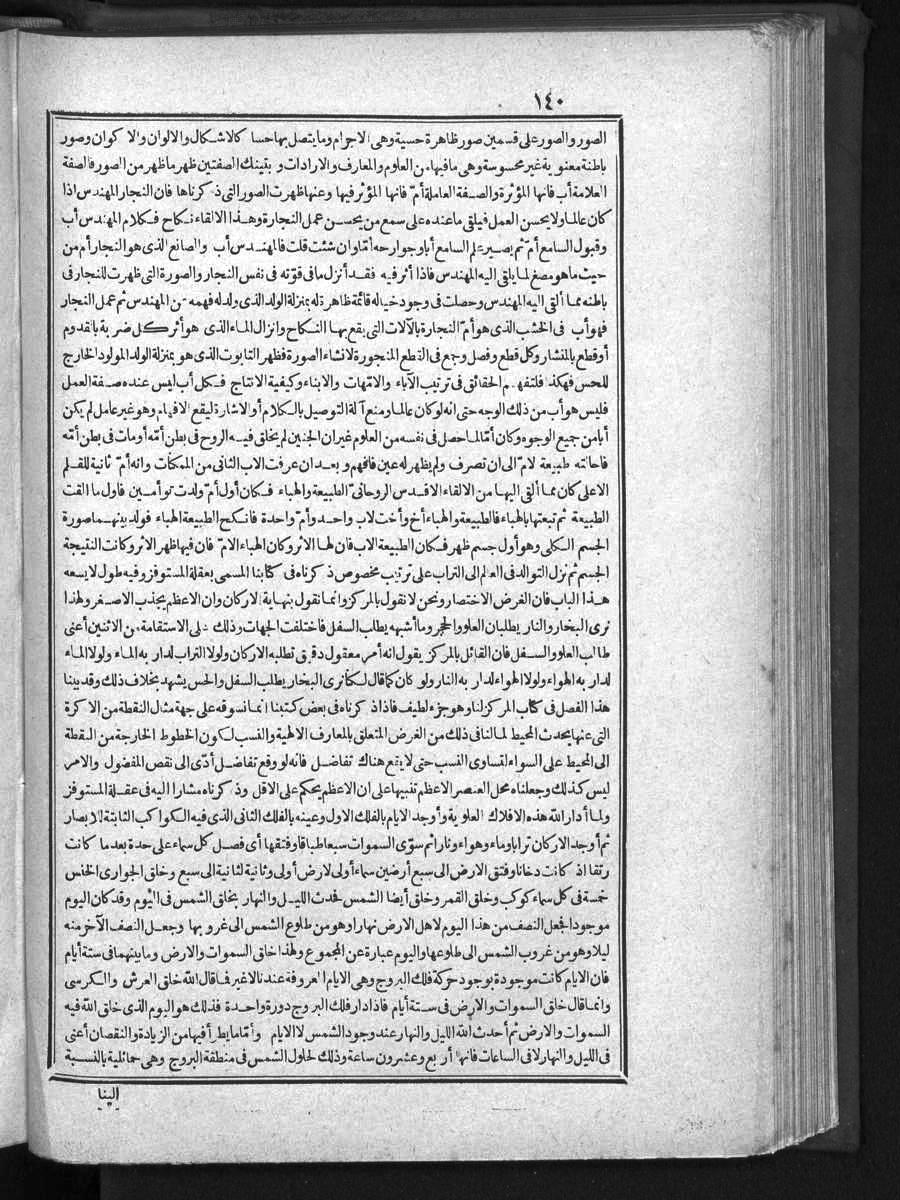 ١٤٠
الصور والصور على قسمين صور ظاهرة حسية وهي الاجرام وما يتصل بها حسا كالاشكال والالوان والاكوان وصور
باطنة معنوية غير محسوسة وهى ما فيها من العلوم والمعارف والارادات وبتينك الصفتين ظهر ما ظهر من الصور فالصفة
العلامة أب فانها المؤثرة والصفة العاملة أمّ فانها المؤثر فيها وعنها ظهرت الصور التى ذكرناها فان النجار المهندس اذا
كان عالما ولا يحسن العمل فيلقى ما عنده على سمع من يحسن عمل النجارة وهذا الالقاء نكاح فكلام المهندس أب
وقبول السامع أمّ ثم يصير علم السامع أبا وجوارحه أمّا وان شئت قلت فالمهندس أب والصانع الذى هو النجار أم من
حيث ما هو مصغ لما يلقى اليه المهندس فاذا أثر فيه فقد أنزل ما فى قوّته فى نفس النجار والصورة التى ظهرت للنجار فى
باطنه مما ألقى اليه المهندس وحصلت فى وجود خياله قائمة ظاهرة له بمنزلة الولد الذى ولد له فهمه من المهندس ثم عمل النجار
فهو أب فى الخشب الذى هو أمّ النجارة بالآلات التى يقع بها النكاح وانزال الماء الذى هو أثر كل ضربة بالقدوم
أو قطع بالمنشار وكل قطع وفصل وجمع فى القطع المنجورة لانشاء الصورة فظهر التابوت الذى هو بمنزلة الولد المولود الخارج
للحس فهكذا فلتفهم الحقائق فى ترتيب الآباء والامّهات والابناء وكيفية الانتاج فكل أب ليس عنده صفة العمل
فليس هو أب من ذلك الوجه حتى انه لو كان عالما ومنع آلة التوصيل بالكلام أو الاشارة ليقع الافهام وهو غير عامل لم يكن
أبا من جميع الوجوه وكان أمّا لما حصل فى نفسه من العلوم غير ان الجنين لم يخلق فيه الروح فى بطن أمّه أو مات فى بطن أمّه
فاحالته طبيعة الامّ الى ان تصرف ولم يظهر له عين فافهم وبعد ان عرفت الاب الثانى من الممكنات وانه أمّ ثانية للقلم
الاعلى كان مما ألقى اليها من الالقاء الاقدس الروحانىّ الطبيعة والهباء فكان أول أمّ ولدت توأمين فاول ما القت
الطبيعة ثم تبعتها بالهباء فالطبيعة والهباء أخ وأخت لاب واحد وأمّ واحدة فانكح الطبيعة الهباء فولد بينهما صورة
الجسم الكلى وهو أول جسم ظهر فكان الطبيعة الاب فان لها الاثر وكان الهباء الامّ فان فيها ظهر الاثر وكانت النتيجة
الجسم ثم نزل التوالد فى العالم الى التراب على ترتيب مخصوص ذكرناه فى كتابنا المسمى بعقلة المستوفز وفيه طول لا يسعه
هذا الباب فان الغرض الاختصار ونحن لا نقول بالمركز وانما نقول بنهاية الاركان وان الاعظم يجذب الاصغر ولهذا
نرى البخار والنار يطلبان العلو والحجر وما أشبهه يطلب السفل فاختلفت الجهات وذلك على الاستقامة من الاثنين أعنى
طالب العلو والسفل فان القائل بالمركز يقول انه أمر معقول دقيق تطلبه الاركان ولولا التراب لدار به الماء ولولا الماء
لدار به الهواء ولولا الهواء لدار به النار ولو كان كما قال لكنا نرى البخار يطلب السفل والحس يشهد بخلاف ذلك وقد بينا
هذا الفصل فى كتاب المركز لنا وهو جزء لطيف فاذا ذكرناه فى بعض كتبنا انما نسوقه على جهة مثال النقطة من الاكرة
التى عنها يحدث المحيط لما لنا فى ذلك من الغرض المتعلق بالمعارف الالهية والنسب لكون الخطوط الخارجة من النقطة
الى المحيط على السواء لتساوى النسب حتى لا يقع هناك تفاضل فانه لو وقع تفاضل أدّى الى نقص المفضول والامر
ليس كذلك وجعلناه محل العنصر الاعظم تنبيها على ان الاعظم يحكم على الاقل وذكرناه مشارا اليه فى عقلة المستوفز
ولما أدار الله هذه الافلاك العلوية وأوجد الايام بالفلك الاول وعينه بالفلك الثانى الذى فيه الكواكب الثابتة للابصار
ثم أوجد الاركان ترابا وماء وهواء ونارا ثم سوّى السموات سبعا طباقا وفتقها أى فصل كل سماء على حدة بعدما كانت
رتقا اذ كانت دخانا وفتق الارض الى سبع أرضين سماء أولى لارض أولى وثانية لثانية الى سبع وخلق الجوارى الخنس
خمسة فى كل سماء كوكب وخلق القمر وخلق أيضا الشمس فحدث الليل والنهار بخلق الشمس فى اليوم وقد كان اليوم
موجودا فجعل النصف من هذا اليوم لاهل الارض نهارا وهو من طلوع الشمس الى غروبها وجعل النصف الآخر منه
ليلا وهو من غروب الشمس الى طلوعها واليوم عبارة عن المجموع ولهذا خلق السموات والارض وما بينهما فى ستة أيام
فان الايام كانت موجودة بوجود حركة فلك البروج وهى الايام المعروفة عندنا لا غير فما قال الله خلق العرش والكرسى
وانما قال خلق السموات والارض فى ستة أيام فاذا دار فلك البروج دورة واحدة فذلك هو اليوم الذى خلق الله فيه
السموات والارض ثم أحدث الله الليل والنهار عند وجود الشمس لا الايام وأمّا ما يطرأ فيها من الزيادة والنقصان أعنى
فى الليل والنهار لا فى الساعات فانها أربع وعشرون ساعة وذلك لحلول الشمس فى منطقة البروج وهى حمائلية بالنسبة
الينا